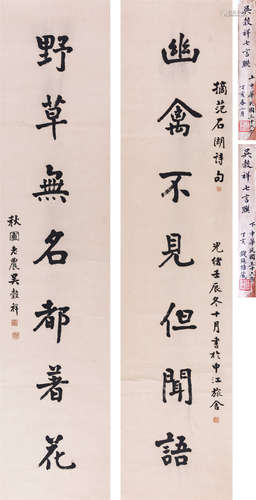 幽禽不見但聞語
摘范石湖詩句
光緒壬辰冬十月書於申江旅舍
野草無名都著花
秋圃老農吳穀祥
吳穀祥七言聯
吳穀祥七言聯